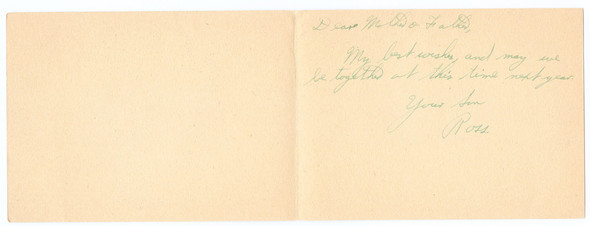 Dear Mother & Father,
My best wishes, and may we
be together at this time next year.
Your Son
Ross.